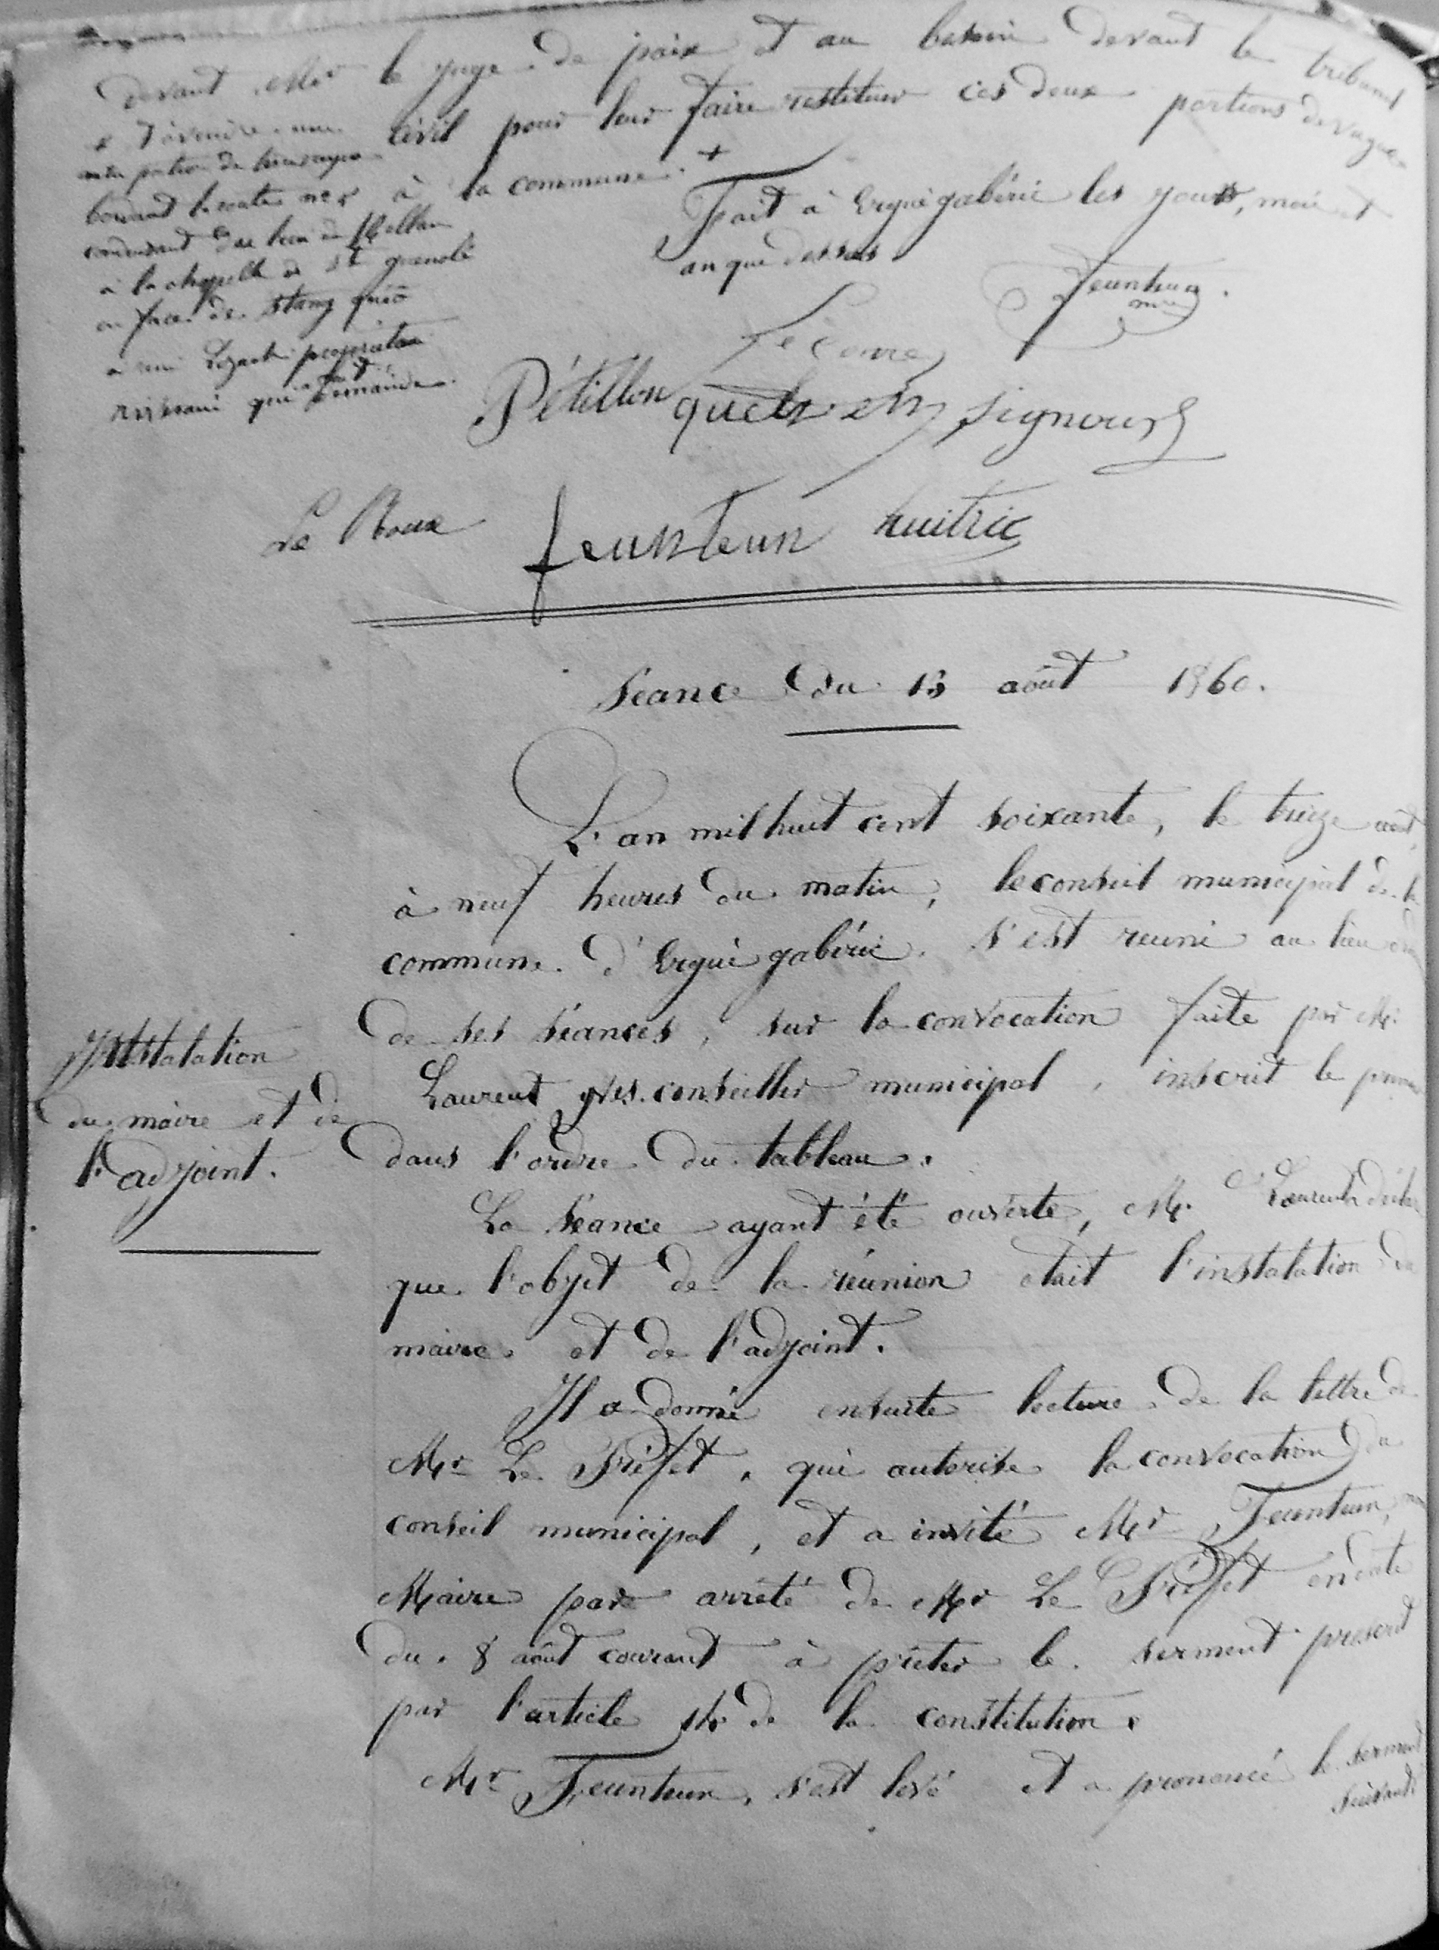 devant Mr le juge de paix et au besoin devant le tribunal
civil pour leur faire restituer ces deux portions de vagues
à la commune. +
+ d'à vendre une
autre portion de
bordant la route no 5
conduisant du lieu de
à la chapelle de St guenolé
en face de Stang
à Lozach propriétaire
riverain qui en fait demande.
Fait à Ergué gabéric les jour, mois et
an que dessus
Feunteun
Pétillon
signour
Le Roux feunteun huitric
Séance du 13 août 1860.
L'an mil huit cent soixante, le treize août,
à neuf heures du matin, le conseil municipal de la
commune d'Ergué gabéric s'est reuni au lieu
de ses séances, sur la convocation faite par Mr
Laurent yves conseiller municipal, inscrit le premier
dans l'ordre du tableau.
Instalation
du maire et de
l'adjoint.
La séance ayant été ouverte, Mr. Laurent déclare
que l'objet de la réunion était l'instalation du
maire et de l'adjoint.
Il a donné ensuite lecture de la lettre de
Mr Le Préfet, qui autorise la convocation du
conseil municipal, et a invité Mr Feunteun,
Maire par arrêté de Mr Le Préfet en date
du 8 août courant à prêter le serment prescrit
par l'article 14 de la constitution.
Mr Feunteun, s'est levé et a prononcé le serment
suivant: